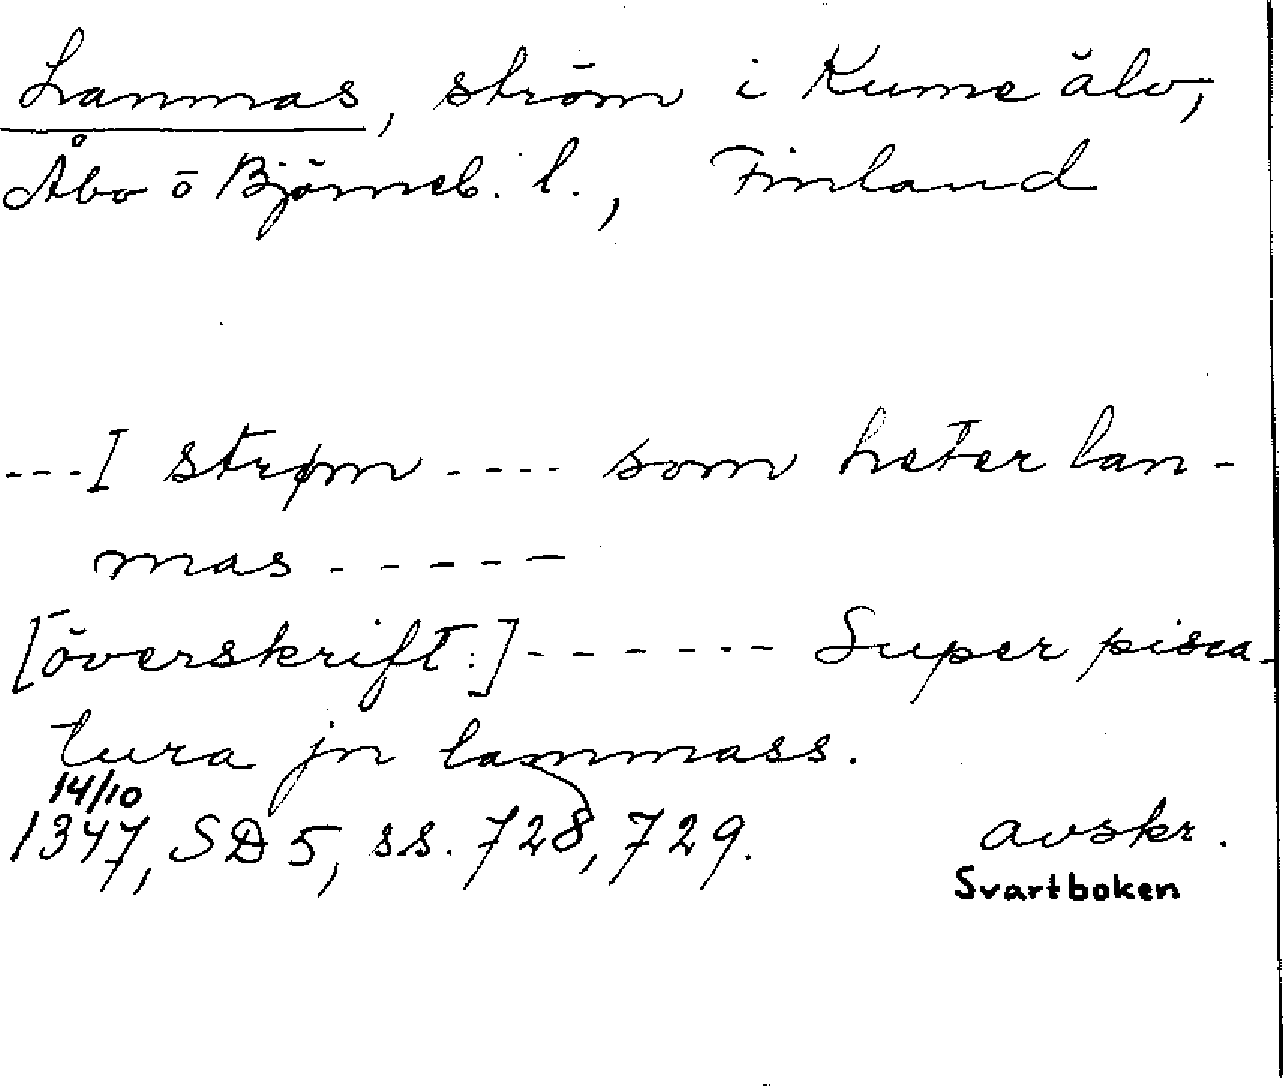 Lanmas, ström i Kumo älv,
Åbo o Björneb. l., Finland
---I strøm ---- som heter lan-
mas -----
[överskrift:]------- Super pisca-
tura jn lammass.
14/10
1347, SD 5, ss. 728, 729. avskr.
Svartboken